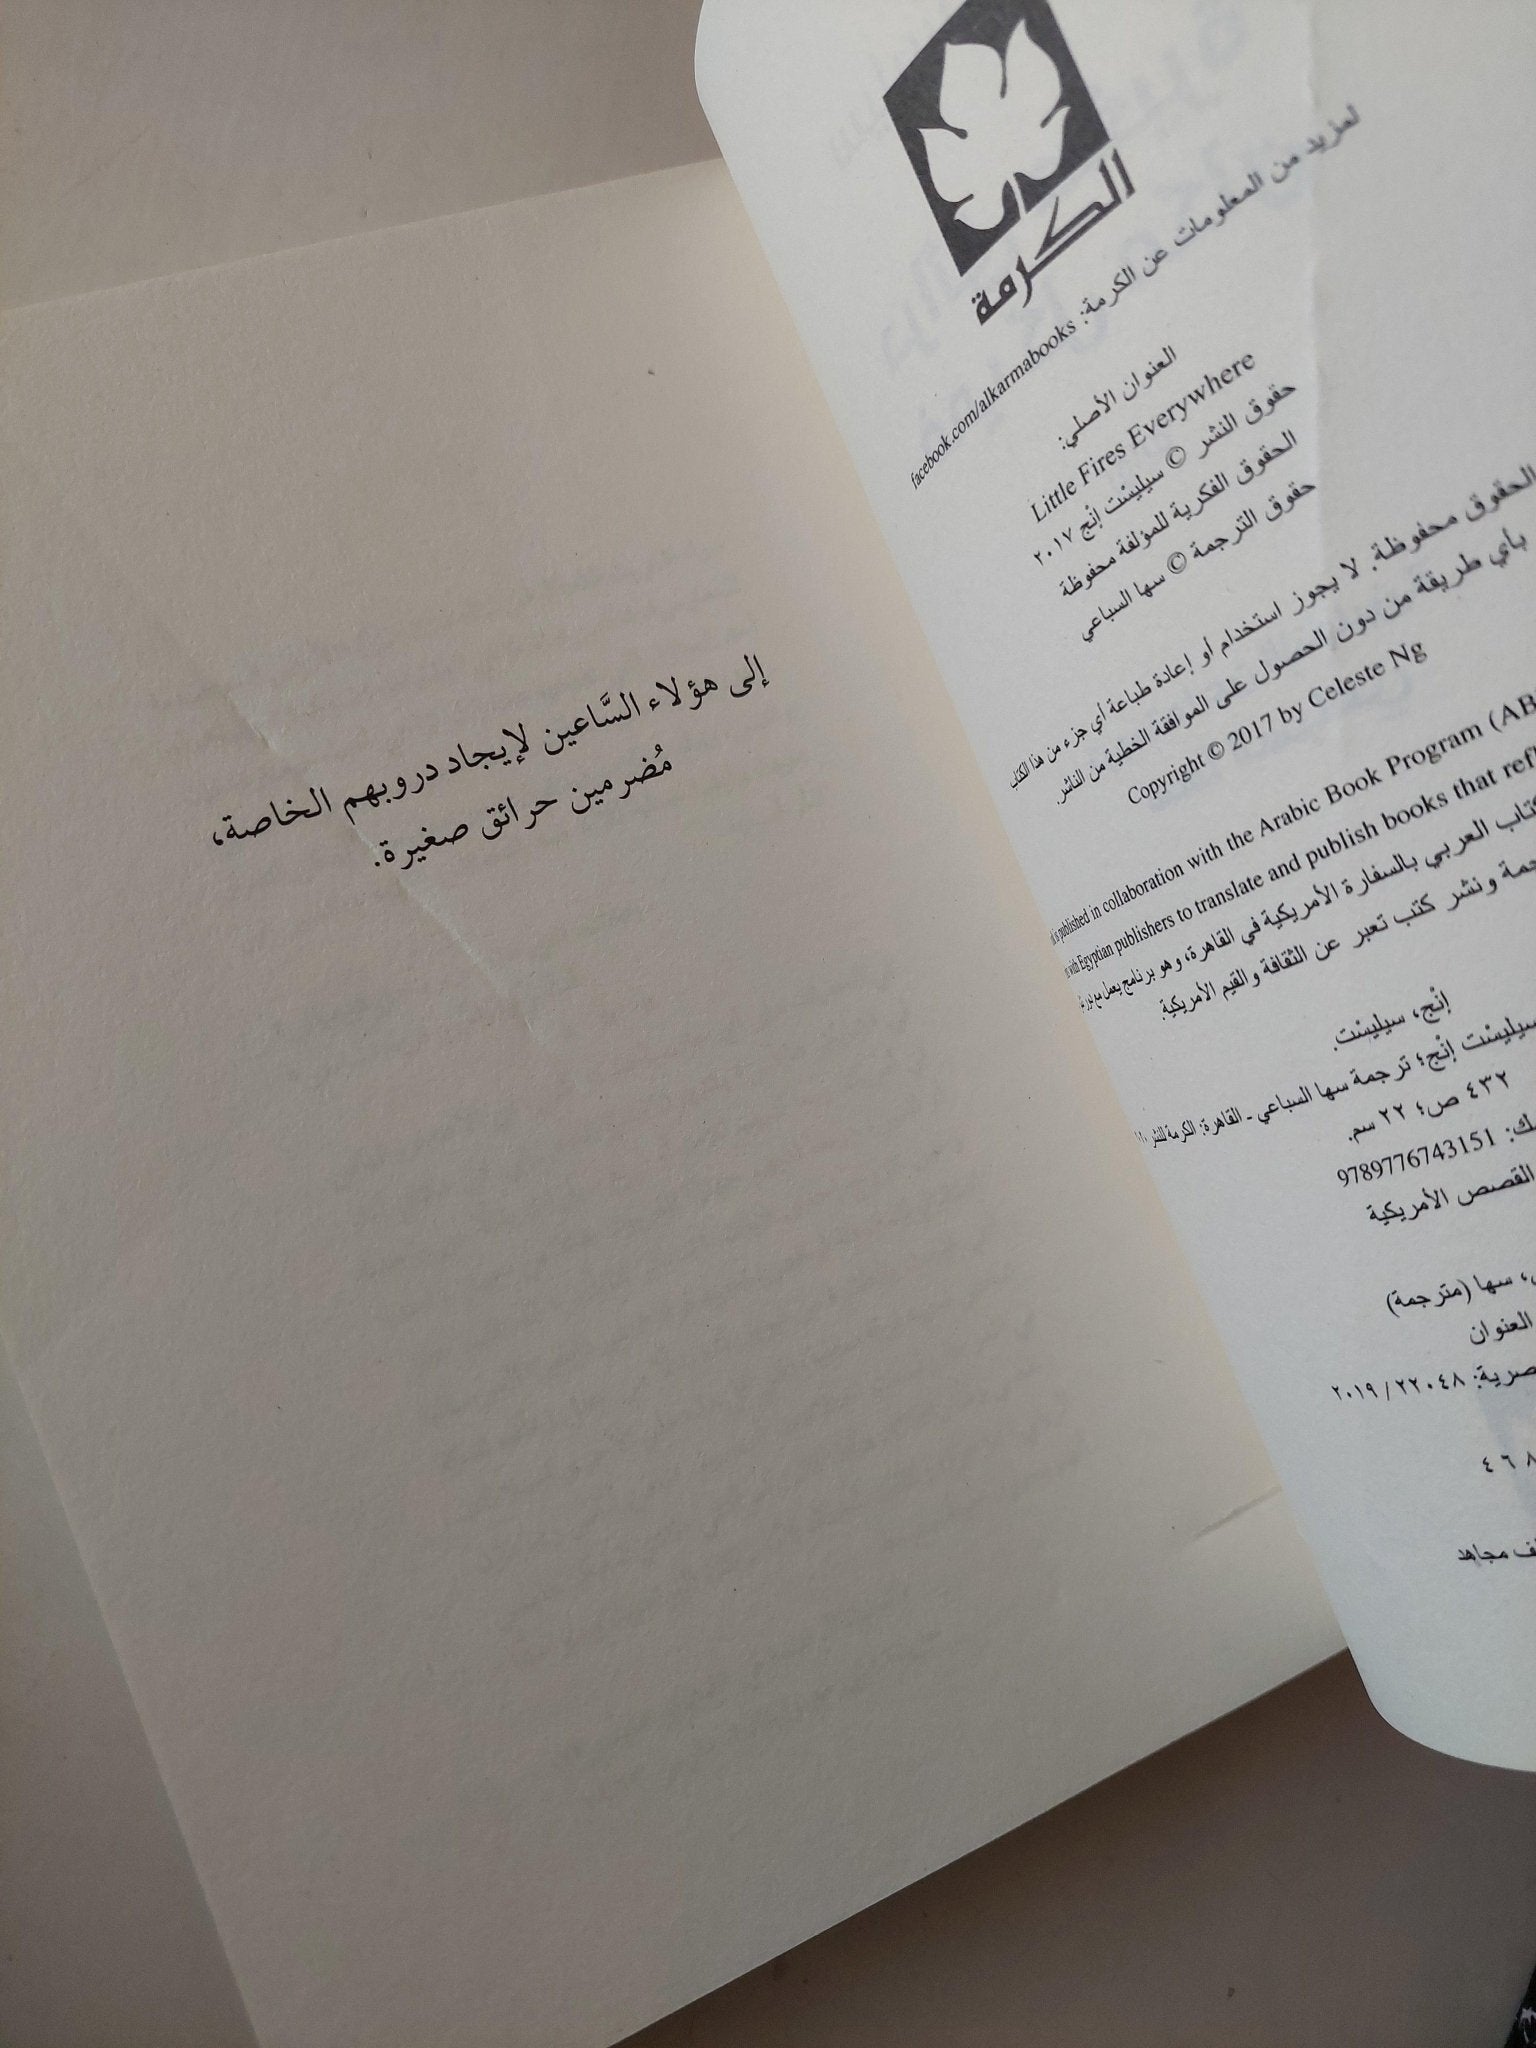 الكرمة
لمزيد من المعلومات عن الكرمة: facebook.com/alkarmabooks
العنوان الأصلي:
Little Fires Everywhere
حقوق النشر © سيليسْت إنْج ٢٠١٧
الحقوق الفكرية للمؤلفة محفوظة
حقوق الترجمة © سها السباعي
الحقوق محفوظة. لا يجوز استخدام أو إعادة طباعة أي جزء من هذا الكتاب
بأي طريقة من دون الحصول على الموافقة الخطية من الناشر.
Copyright © 2017 by Celeste Ng
is published in collaboration with the Arabic Book Program (AB
with Egyptian publishers to translate and publish books that refl
كتاب العربي بالسفارة الأمريكية في القاهرة، وهو برنامج يعمل مع
ونشر كتب تعبر عن الثقافة والقيم الأمريكية.
إنْج، سيليسْت.
سيليسْت إنْج؛ ترجمة سها السباعي - القاهرة: الكرمة للنشر
٤٣٢ ص؛ ٢٢ سم.
9789776743151
القصص الأمريكية
سها (مترجمة)
العنوان
٢٢٠٤٨ / ٢٠١٩
٤ ٦ ٨
مجاهد
إلى هؤلاء السَّاعين لإيجاد دروبهم الخاصة،
مُضرمين حرائق صغيرة.